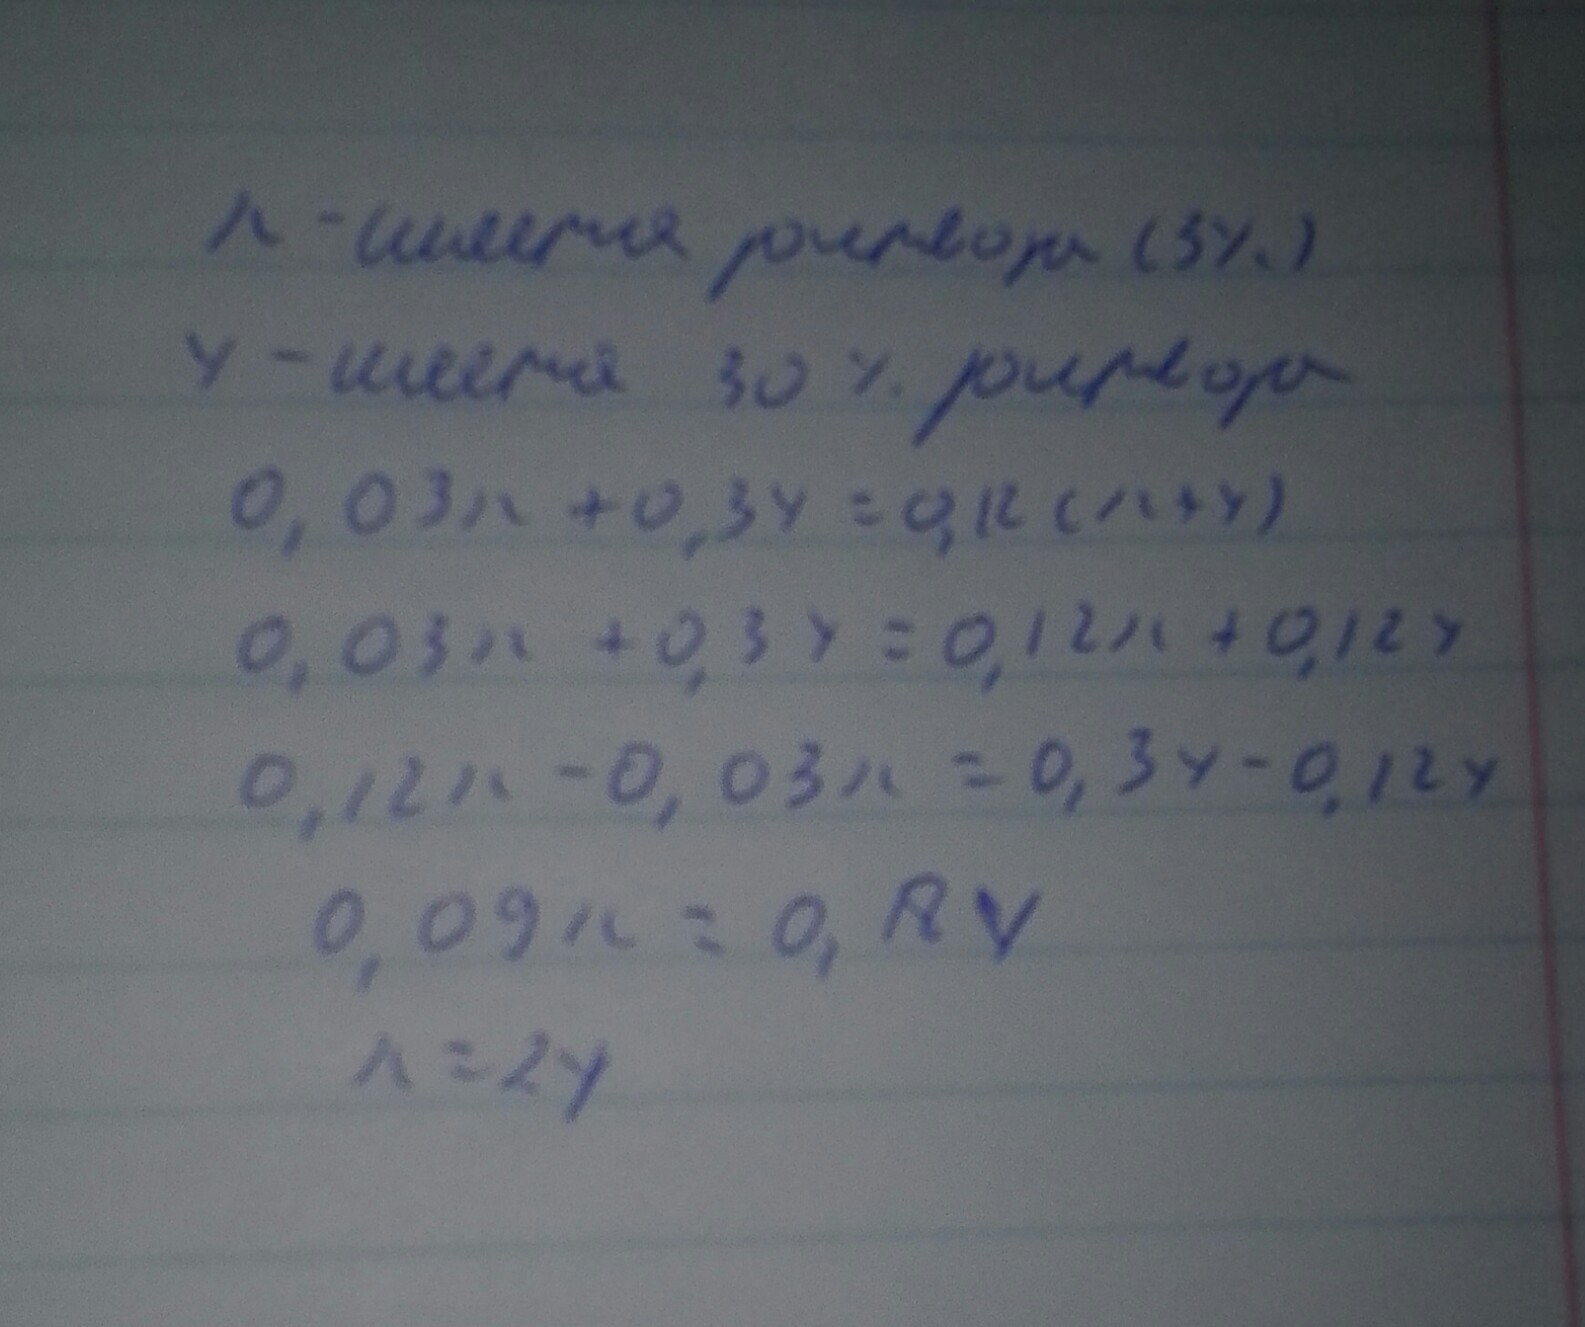 x - имеется раствора (3%)
y - имеется 30 %. раствора
0,03x + 0,3y = 0,12(x+y)
0,03x + 0,3y = 0,12x + 0,12y
0,12x - 0,03x = 0,3y - 0,12y
0,09x = 0,18y
x = 2y